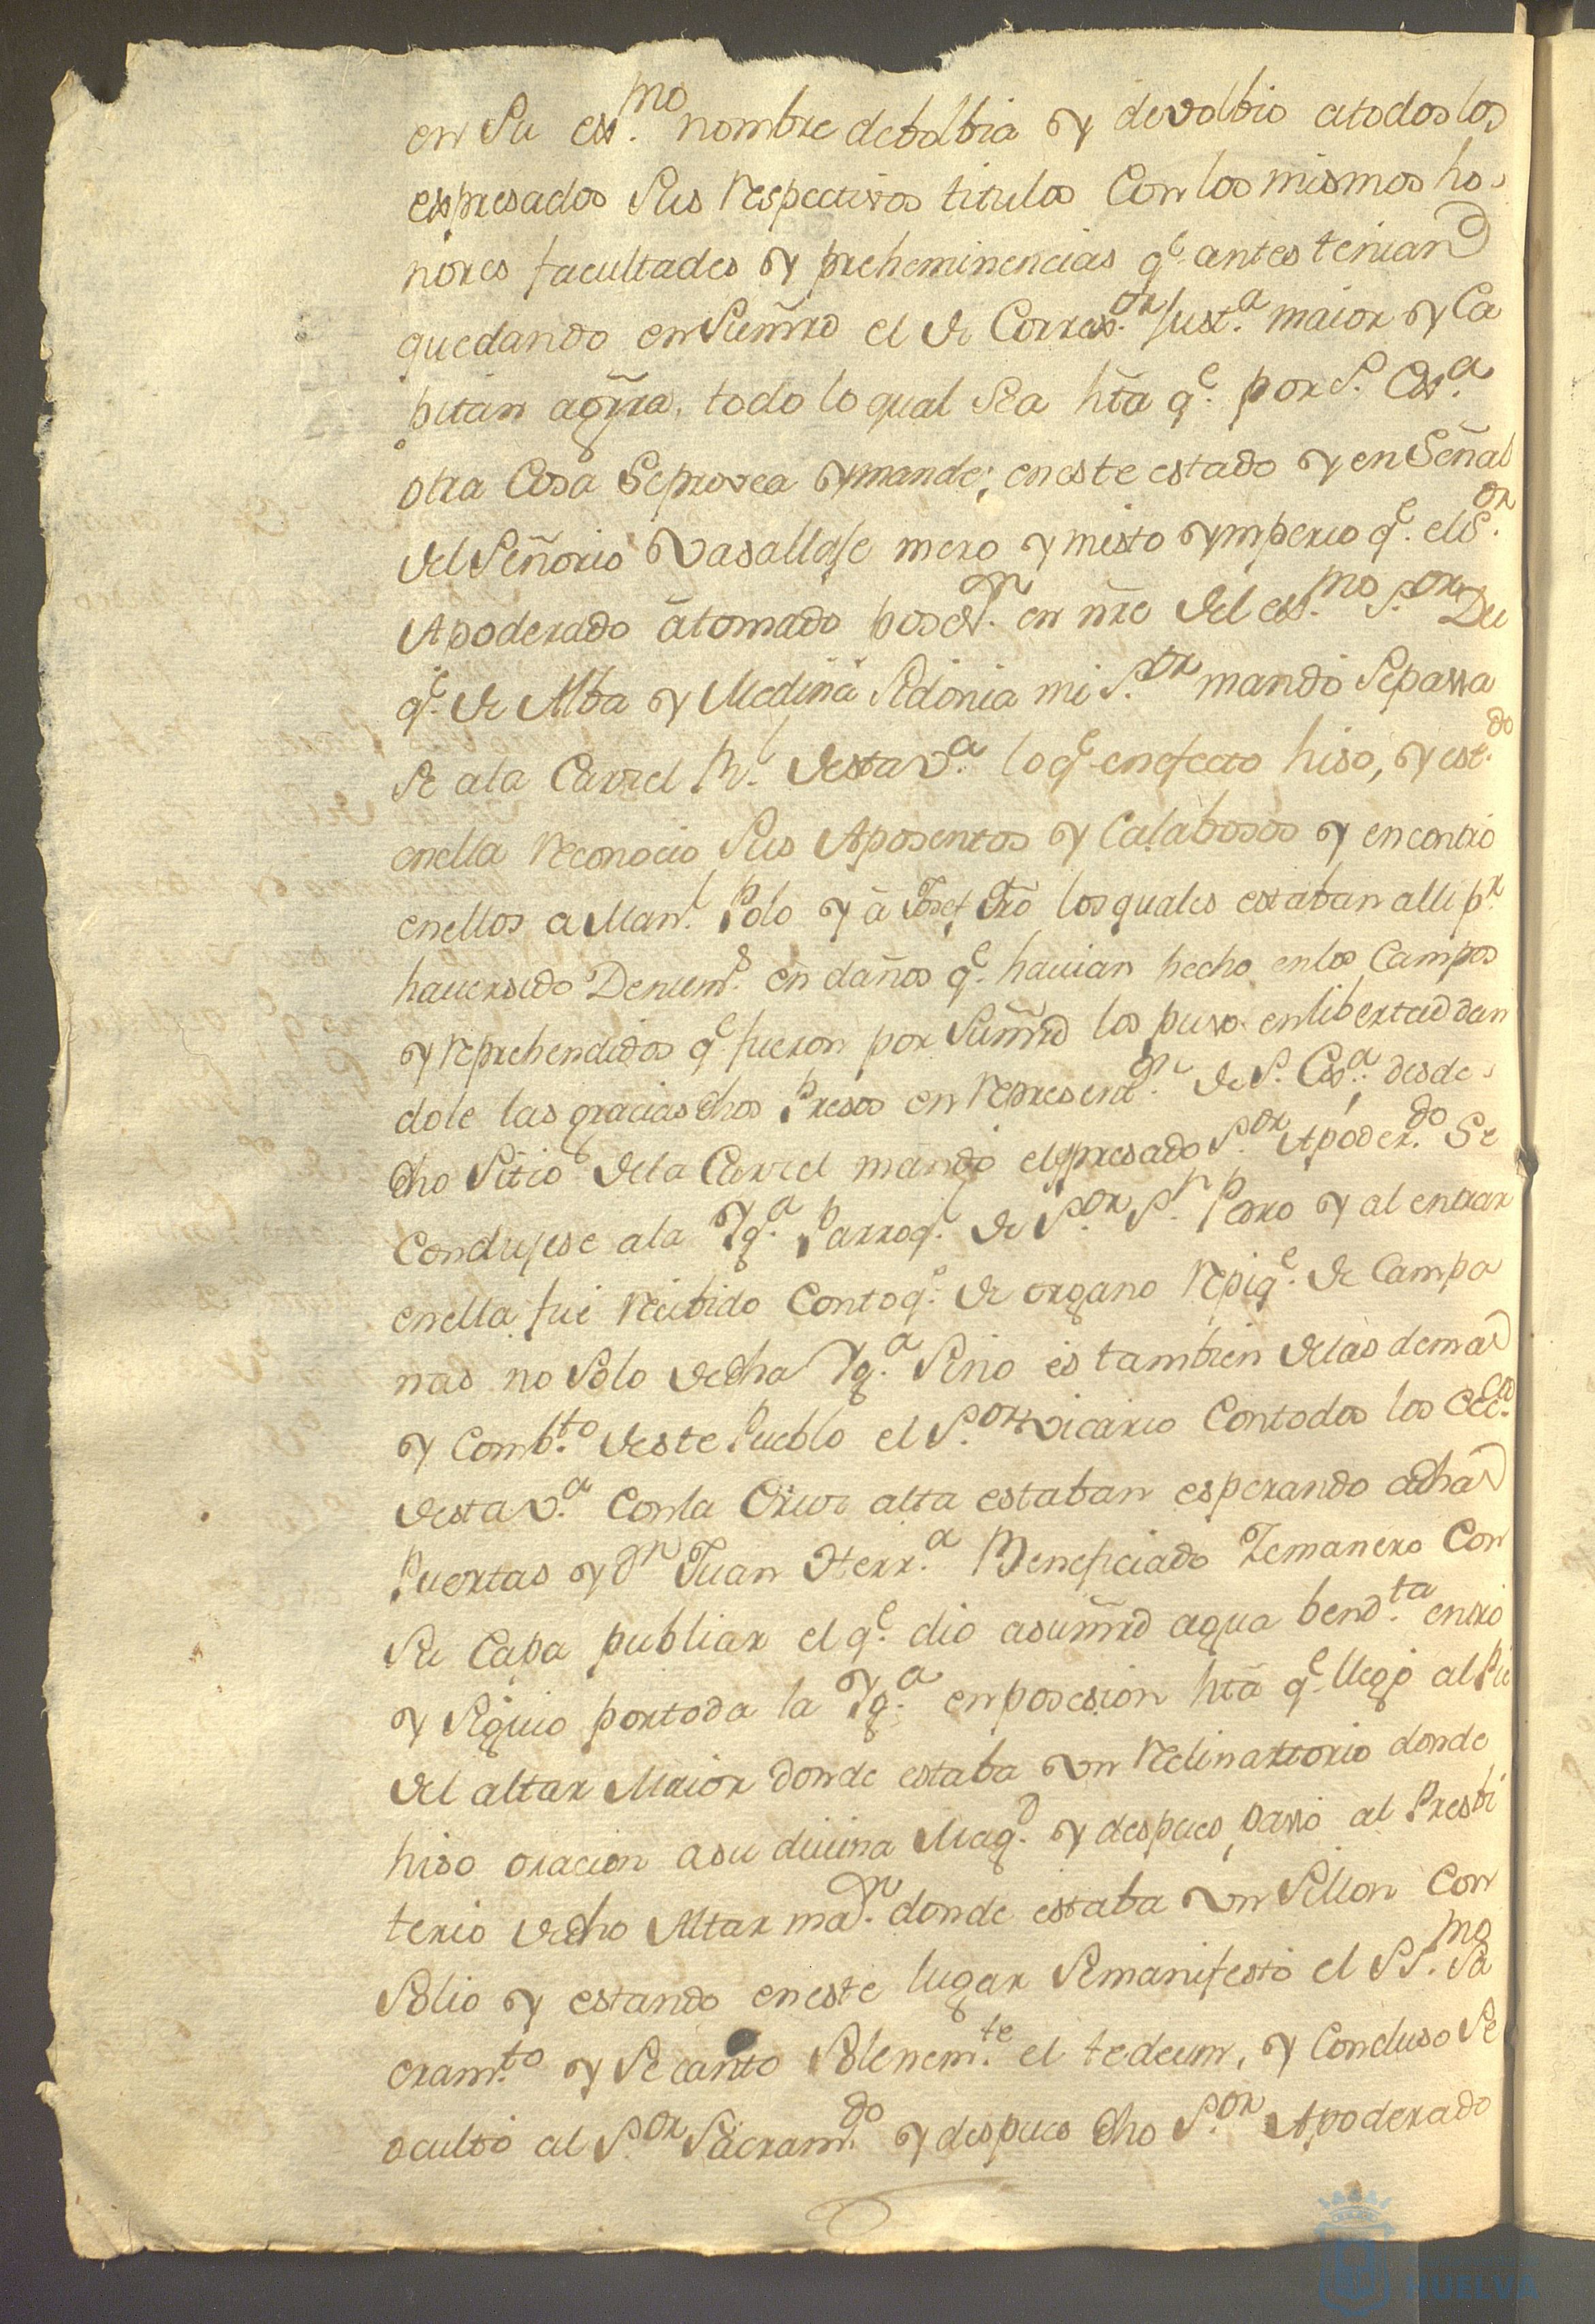 en Su ex.mo nombre debolbia y devolbio a todos los
expresados Sus respectivos titulos Con los mismos ho
nores facultades y preheminencias q.e antes tenian
quedando en Sumrd el de Correx.or Just.a maior y Ca
pitan agrra. todo lo qual Sea hta q.e por S. Ex.a
otra Cosa Se provea y mande; en este estado y en Señal
del Señorio Vasallaje mero y misto ymperio q.e el S.or
Apoderado á tomado poses.n en nre del ex.mo S.or Du
q.e de Alba y Medina Sidonia mi S.or mandó Se passa
Se a la Carzel R.l desta V.a lo q.e en efecto hiso, y est.do
en ella reconocio Sus Aposentos y Calabosos y encontró
en ellos a Man.l Polo y á Josef Oro los quales estaban alli p.r
haver sido Denun.s en daños q.e havian hecho en los Campos
y reprehendidos q.e fueron por Sumrd los puso en libertad dan
dole las gracias dhos Presos en represent.n de S. Ex.a desde
dho Sitio de la Carzel mandó el expresado S.or Apoder.do Se
Condujese a la Yg.a Parroq.l de S.or S.n Pedro y al entrar
en ella fué recibido Con toq.e de organo repiq.e de Campa
nas no Solo de dha Yg.a Sino es tambien de las demas
y Comb.to deste Pueblo el S.or Vicario Con todos los Ecc.cos
desta V.a Con la Cruz alta estaban esperando a dhas
Puertas y D.n Juan Herr.a Beneficiado Zemanero Con
Su Capa publiar el q.e dio a sumrd agua bend.ta entró
y Siguio por toda la Yg.a en posesion hta q.e llegó al Pie
del altar Maior donde estaba un reclinattorio donde
hiso oracion a su divina Mag.d y despues passó al Presbi
terio de dho Altar ma.or donde estaba un Sillon Con
Solio y estando en este lugar Se manifestó el SS.mo Sa
cram.to y Se canto Solenem.te el tedeum, y Concluso Se
ocultó al S.or Sacram.do y despues dho S.or Apoderado
HUELVA